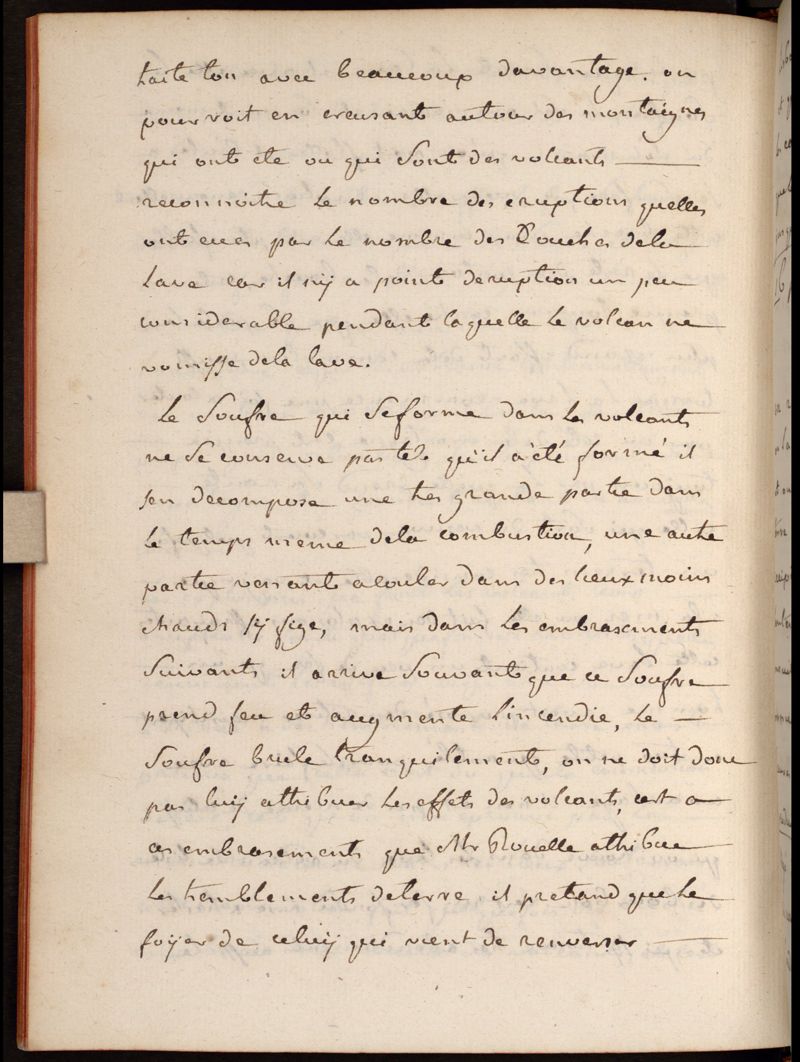 traite t'on avec beaucoup davantage. on
pourroit en creusant autour des montaignes
qui ont ete ou qui sont des volcants
reconnoitre le nombre des eruptions quelles
ont eues par le nombre des Couches dela
Lave car il ny a point deruption un peu
considerable pendant laquelle le volcan ne
vomisse dela lave.
Le Soufre qui se forme dans les volcants
ne se conserve pas tel qu'il a été formé il
sen decompose une tres grande partie dans
le temps meme dela combustion, une autre
partie venant a couler dans des lieux moins
chauds sy fige, mais dans les embrasements
suivants il arrive souvant que ce Soufre
prend feu et augmente lincendie, le
Soufre brule tranquilement, on ne doit donc
pas luy attribuer les effets des volcants, cest a
ces embrasements que Mr Rouelle attribue
les tremblements deterre il pretand que le
foyer de celuy qui vient de renverser